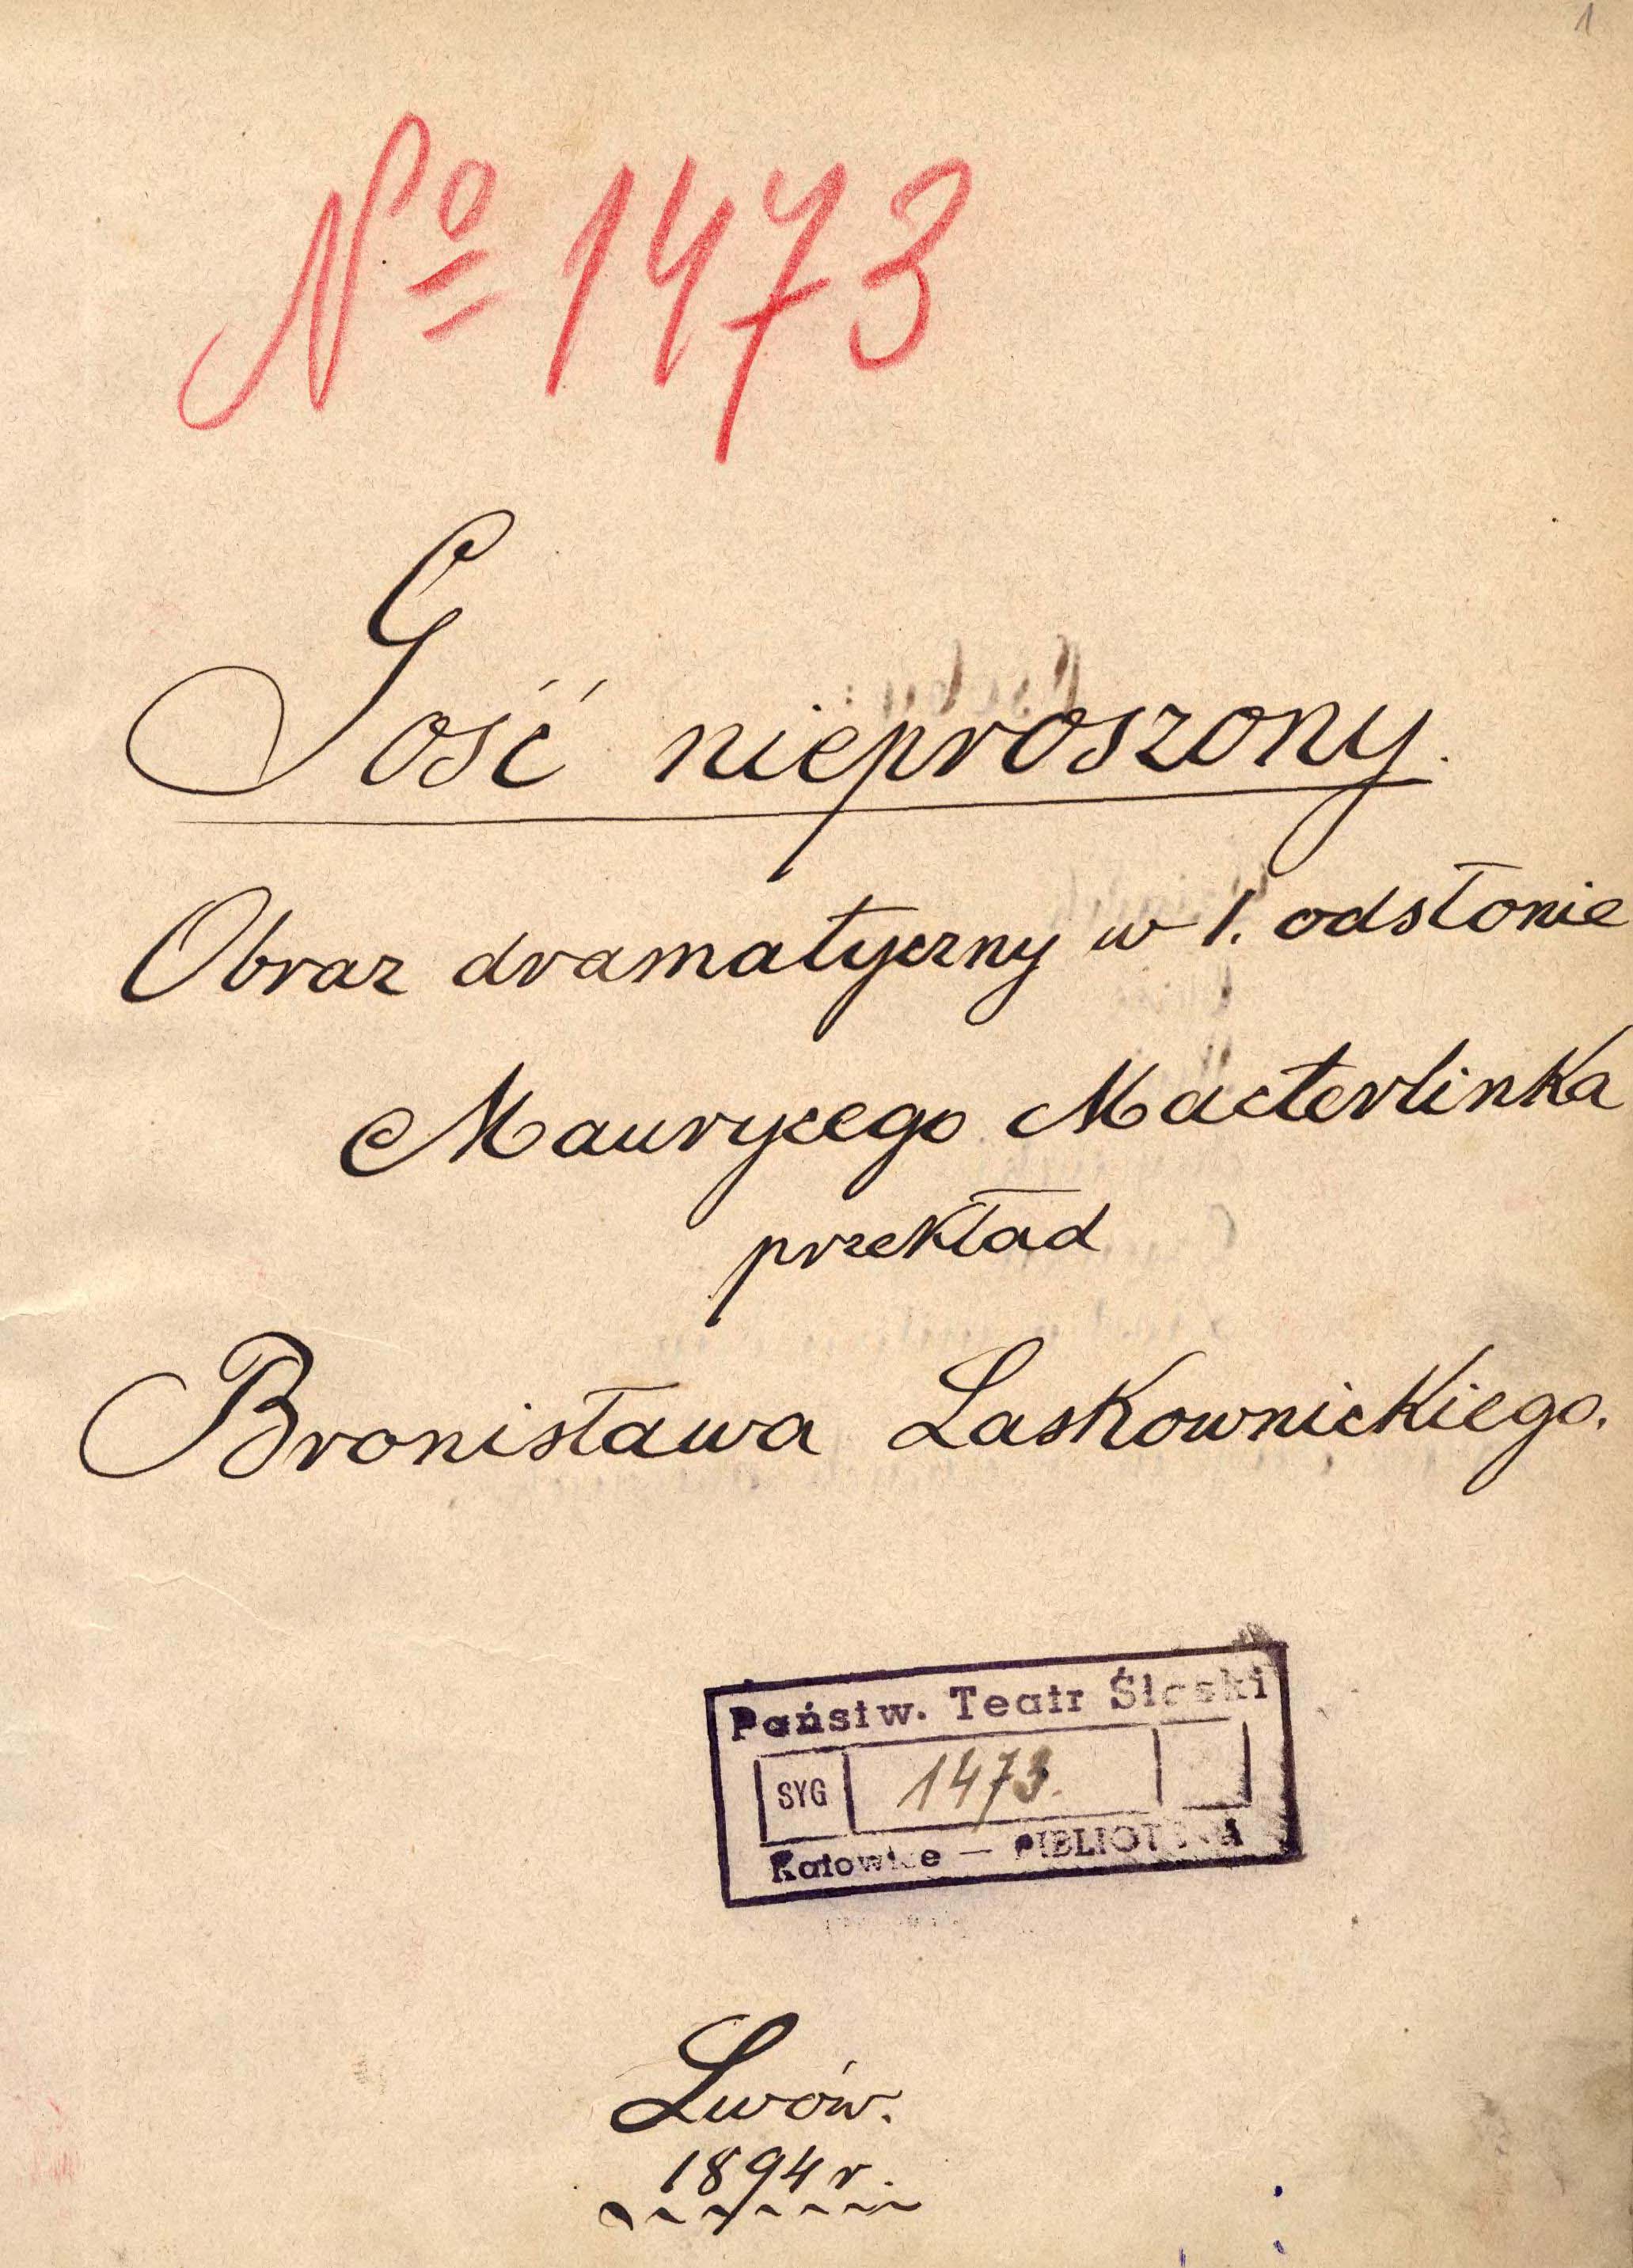 1
Nº 1473
Gość nieproszony.
Obraz dramatyczny w 1. odsłonie
Maurycego Maeterlinka
przekład
Bronisława Laskownickiego.
Państw. Teatr Śląski
SYG 1473.
Katowice — BIBLIOTEKA
Lwów.
1894 r.